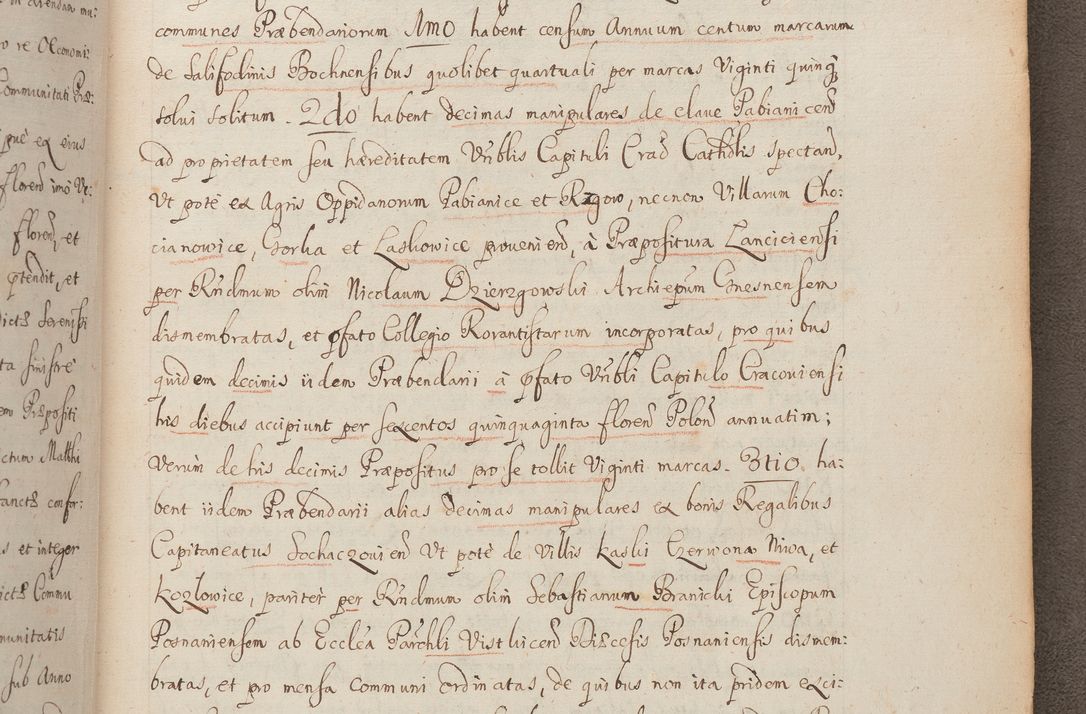 communes Præbendariorum Imo habent censum Annuum centum marcarum
de Salifodinis Bochnensibus quolibet quartuali per marcas Viginti quinq3
solui solitum. 2do habent decimas manipulares de claue Pabianicen̄
ad proprietatem seu hæreditatem Vn̄blis Capituli Crac̄ Cathdlis spectan̄,
Vt potè ex Agris Oppidanorum Pabianice et Rzgow, necnon Villarum Cho:
cianowice, Gorka et Laskowice prouenien̄, à Præpositura Lanciciensi
per Rn̄dmum olim Nicolaum Dzierzgowski Archiepūm Gnesnensem
dismembratas, et p̄fato Collegio Rorantistarum incorporatas, pro quibus
quidem decimis iidem Præbendarii à p̄fato Vn̄bli Capitulo Cracouiensi
his diebus accipiunt per sexcentos quinquaginta floren̄ Polon̄ annuatim;
Verum de his decimis Præpositus pro se tollit Viginti marcas. 3tio ha:
bent iidem Præbendarii alias decimas manipulares ex bonis Regalibus
Capitaneatus Sochaczouien̄ Vt potè de Villis Kaski Czerwona Niwa, et
Kozlowice, pariter per Rn̄dmum olim Sebastianum Branicki Episcopum
Posnaniensem ab Ecclēa Parchli Vistlicen̄ Diæcesis Posnaniensis dismem:
bratas, et pro mensa communi ordinatas, de quibus non ita pridem exci: